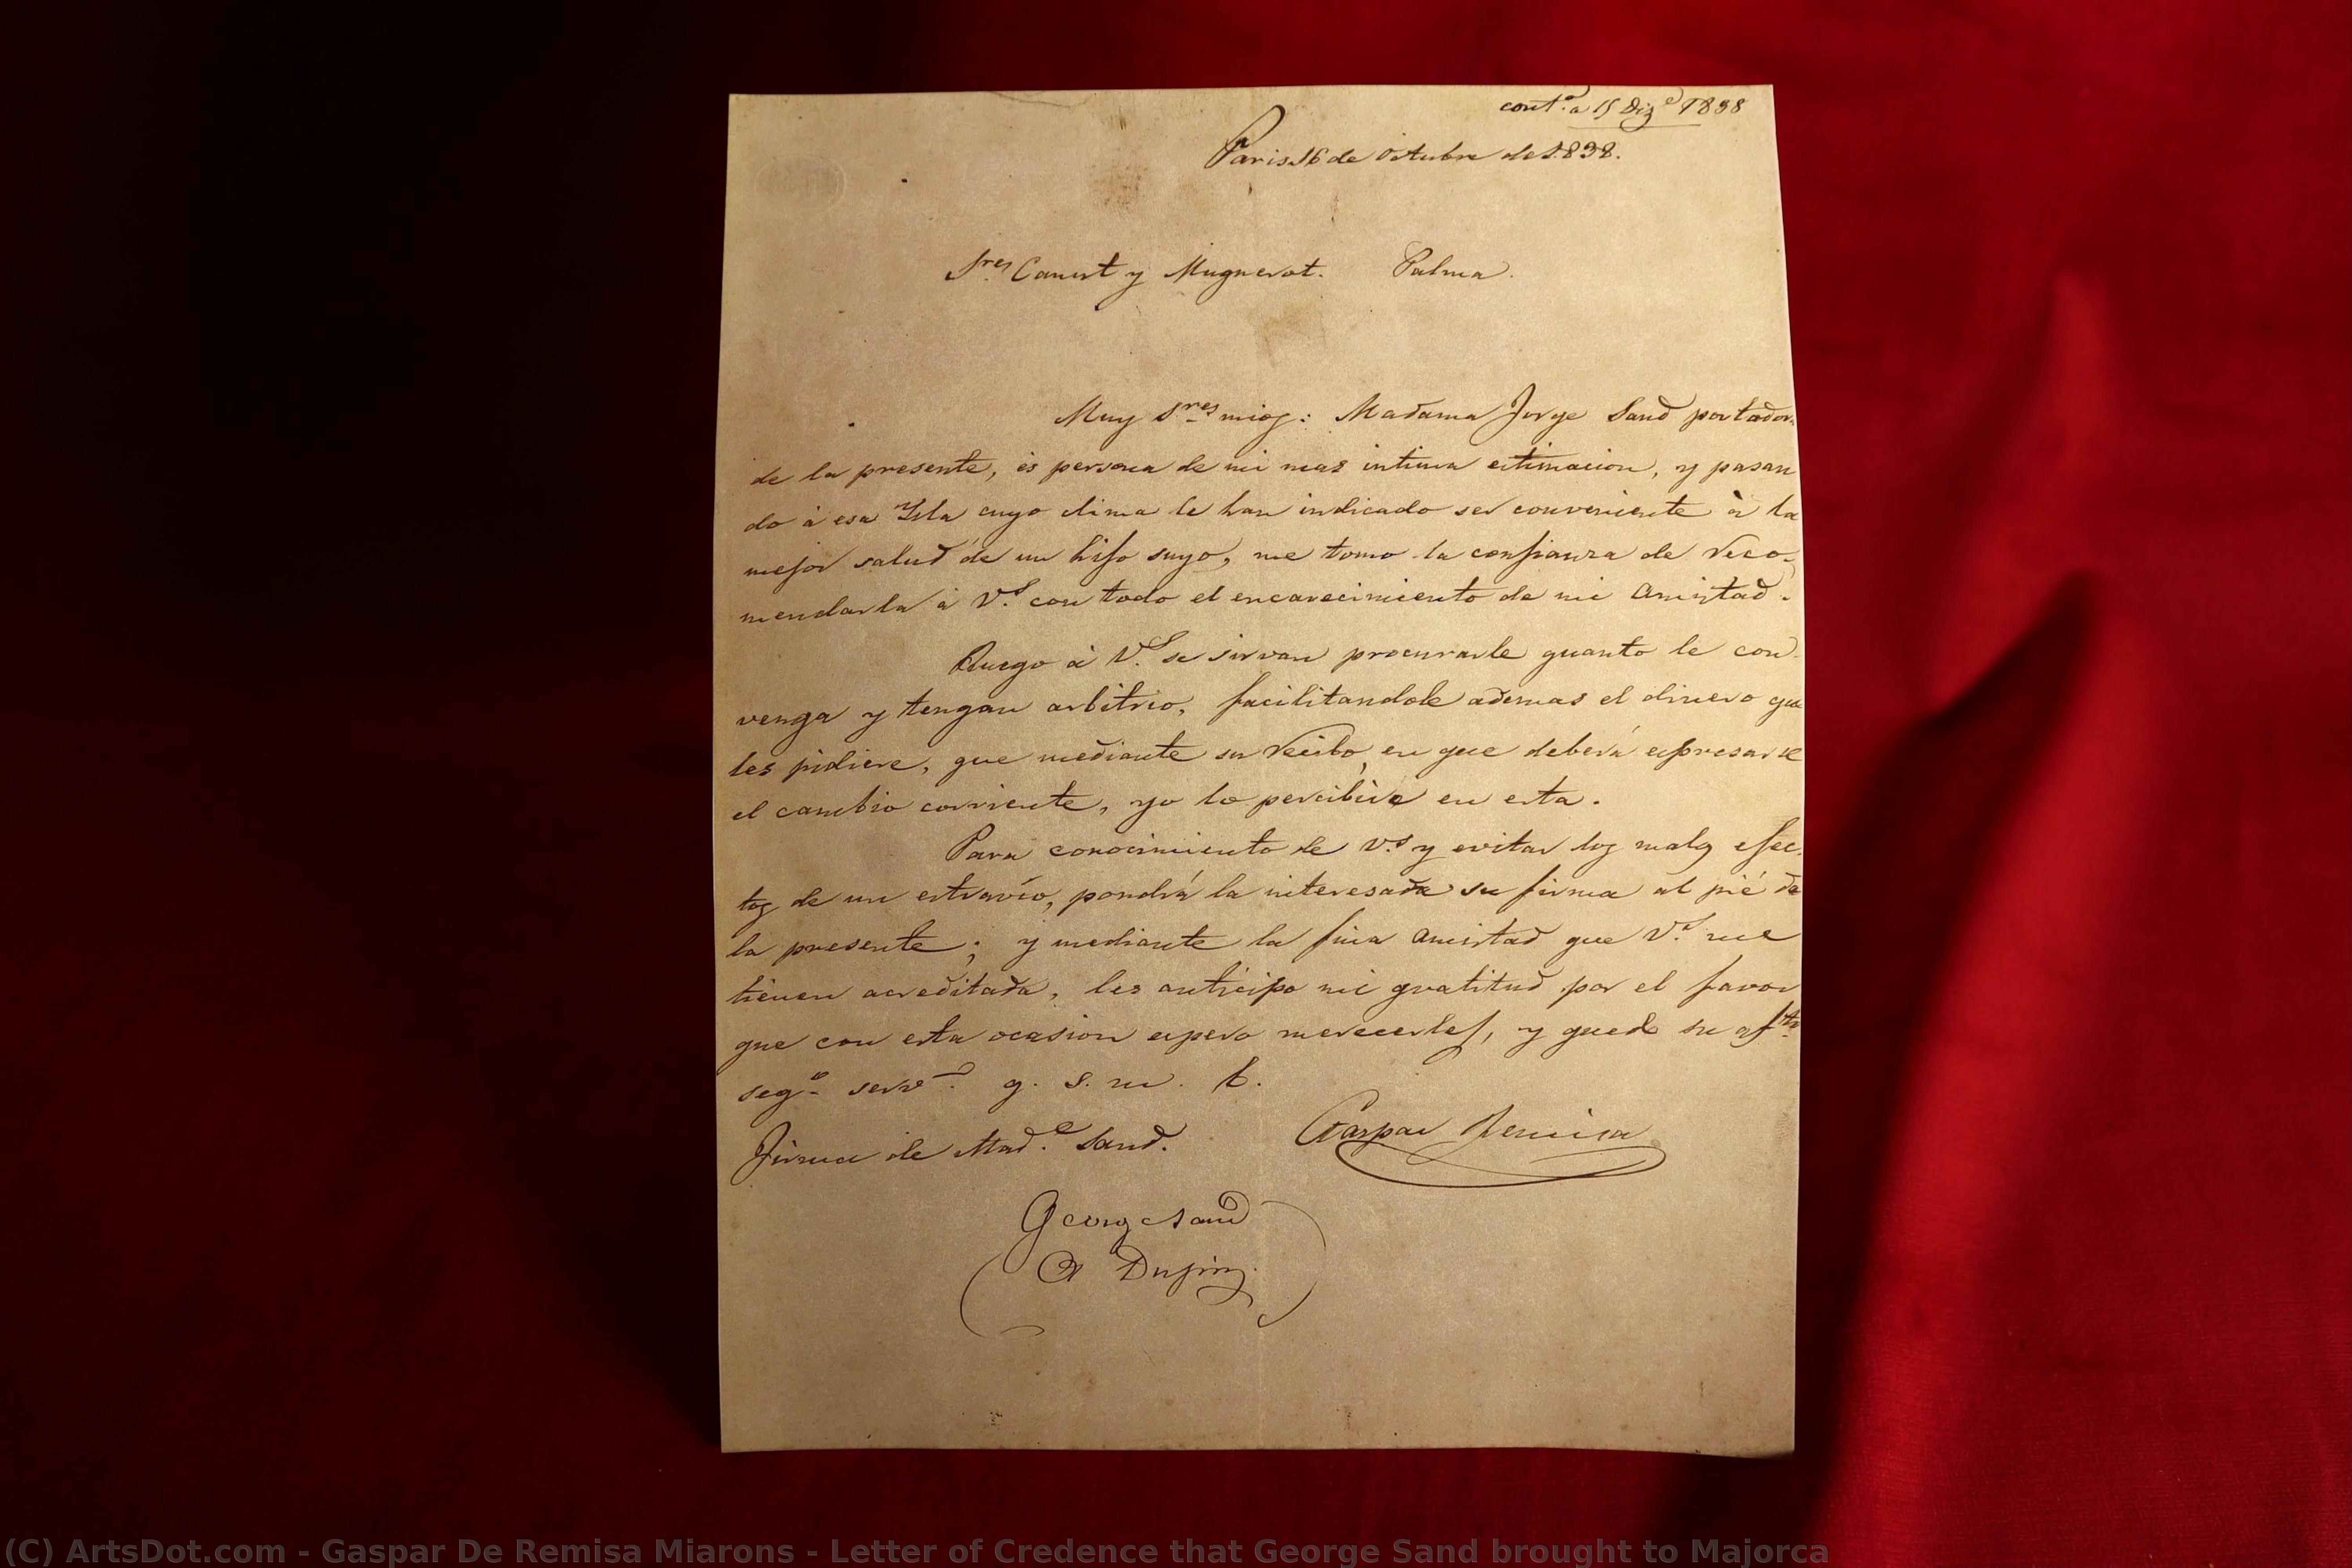 cont.º a 15 Diz.e 1838
Paris 16 de Octubre de 1838.
S.res Canut y Mugnerot. Palma.
Muy S.res mios: Madama Jorge Sand portadora
de la presente, és persona de mi mas intima estimacion, y pasan
do à esa Ysla cuyo clima le han indicado ser conveniente à la
mejor salud de un hijo suyo, me tomo la confianza de reco-
mendarla à V.s con todo el encarecimiento de mi amistad.
Ruego à V.s se sirvan procurarle quanto le con-
venga y tengan arbitrio, facilitandole ademas el dinero que
les pidiere, que mediante su recibo, en que deberá espresarse
el cambio corriente, yo lo percibiré en esta.
Para conocimiento de V.s y evitar los malos efec-
tos de un estravío, pondrá la interesada su firma al pié de
la presente; y mediante la fina amistad que V.s me
tienen acreditada, les anticipo mi gratitud por el favor
que con esta ocasion espero merecerles, y quedo su af.to
seg.º serv.r q. s. m. b.
Firma de Mad.e Sand.
Gaspar Remisa
George Sand
A Dupin
(C) ArtsDot.com - Gaspar De Remisa Miarons - Letter of Credence that George Sand brought to Majorca